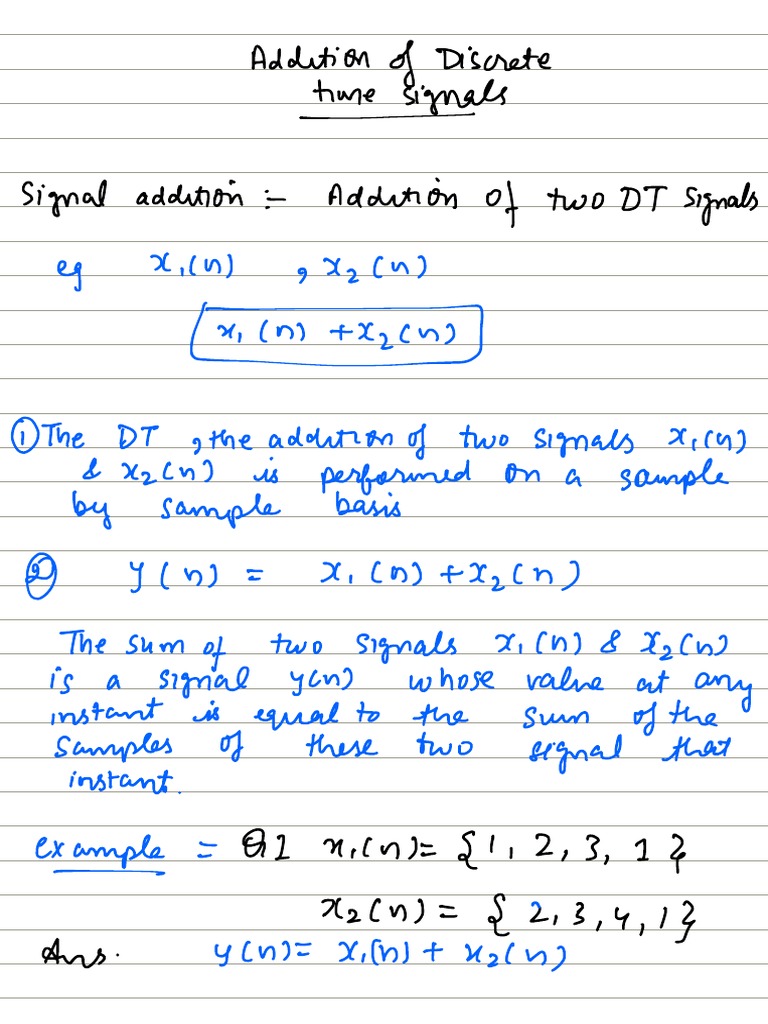 Addition of Discrete
time signals
Signal addition :- Addition of two DT Signals
eg x₁(n) , x₂(n)
x₁(n) + x₂(n)
① The DT , the addition of two signals x₁(n)
& x₂(n) is performed on a sample
by sample basis
② y(n) = x₁(n) + x₂(n)
The sum of two signals x₁(n) & x₂(n)
is a signal y(n) whose value at any
instant is equal to the sum of the
samples of these two signal that
instant.
example = Q1 x₁(n) = {1, 2, 3, 1}
x₂(n) = {2, 3, 4, 1}
Ans. y(n) = x₁(n) + x₂(n)